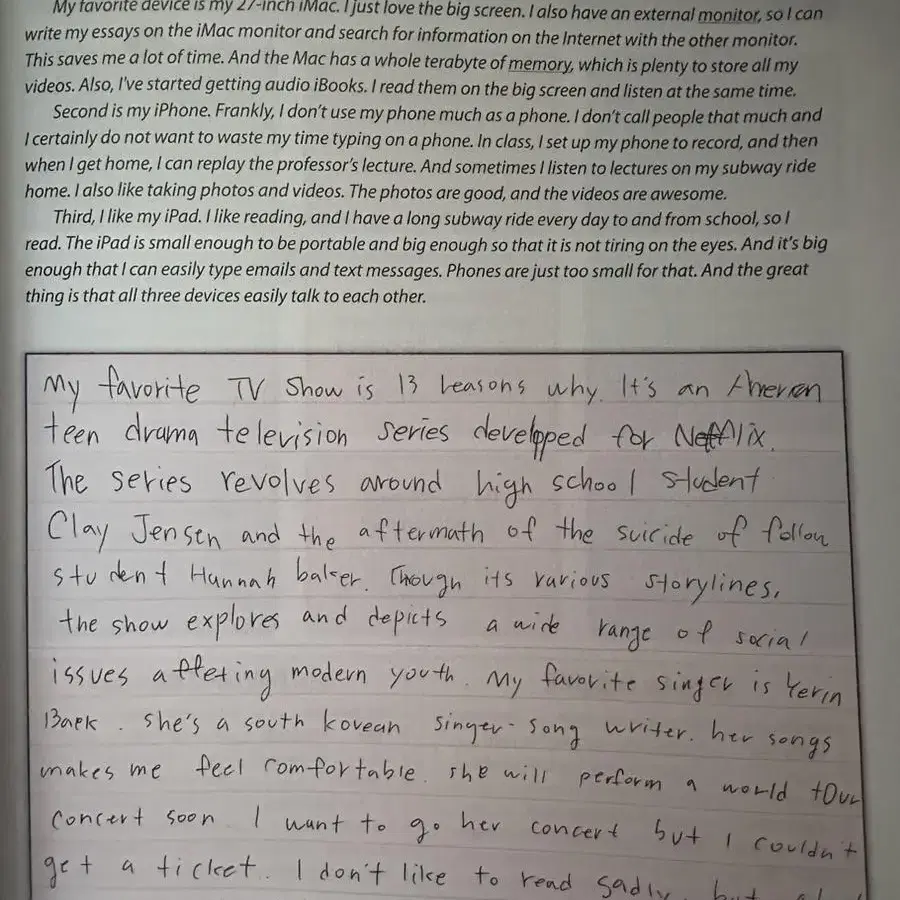 My favorite device is my 27-inch iMac. I just love the big screen. I also have an external monitor, so I can
write my essays on the iMac monitor and search for information on the Internet with the other monitor.
This saves me a lot of time. And the Mac has a whole terabyte of memory, which is plenty to store all my
videos. Also, I've started getting audio iBooks. I read them on the big screen and listen at the same time.
Second is my iPhone. Frankly, I don't use my phone much as a phone. I don't call people that much and
I certainly do not want to waste my time typing on a phone. In class, I set up my phone to record, and then
when I get home, I can replay the professor's lecture. And sometimes I listen to lectures on my subway ride
home. I also like taking photos and videos. The photos are good, and the videos are awesome.
Third, I like my iPad. I like reading, and I have a long subway ride every day to and from school, so I
read. The iPad is small enough to be portable and big enough so that it is not tiring on the eyes. And it's big
enough that I can easily type emails and text messages. Phones are just too small for that. And the great
thing is that all three devices easily talk to each other.
My favorite TV Show is 13 reasons why. It's an
teen drama television series developped for Netflix.
The series revolves around high school student
Clay Jensen and the aftermath of the suicide of follow
student Hannah baker. Though its various storylines,
the show explores and depicts a wide range of social
issues affeting modern youth. My favorite singer is Yerin
Baek. she's a south korean singer-song writer. her songs
makes me feel comfortable. she will perform a world tour
concert soon. I want to go her concert but I couldn't
get a ticket. I don't like to read sadly, but